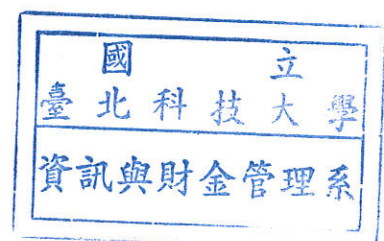 國立
臺北科技大學
資訊與財金管理系